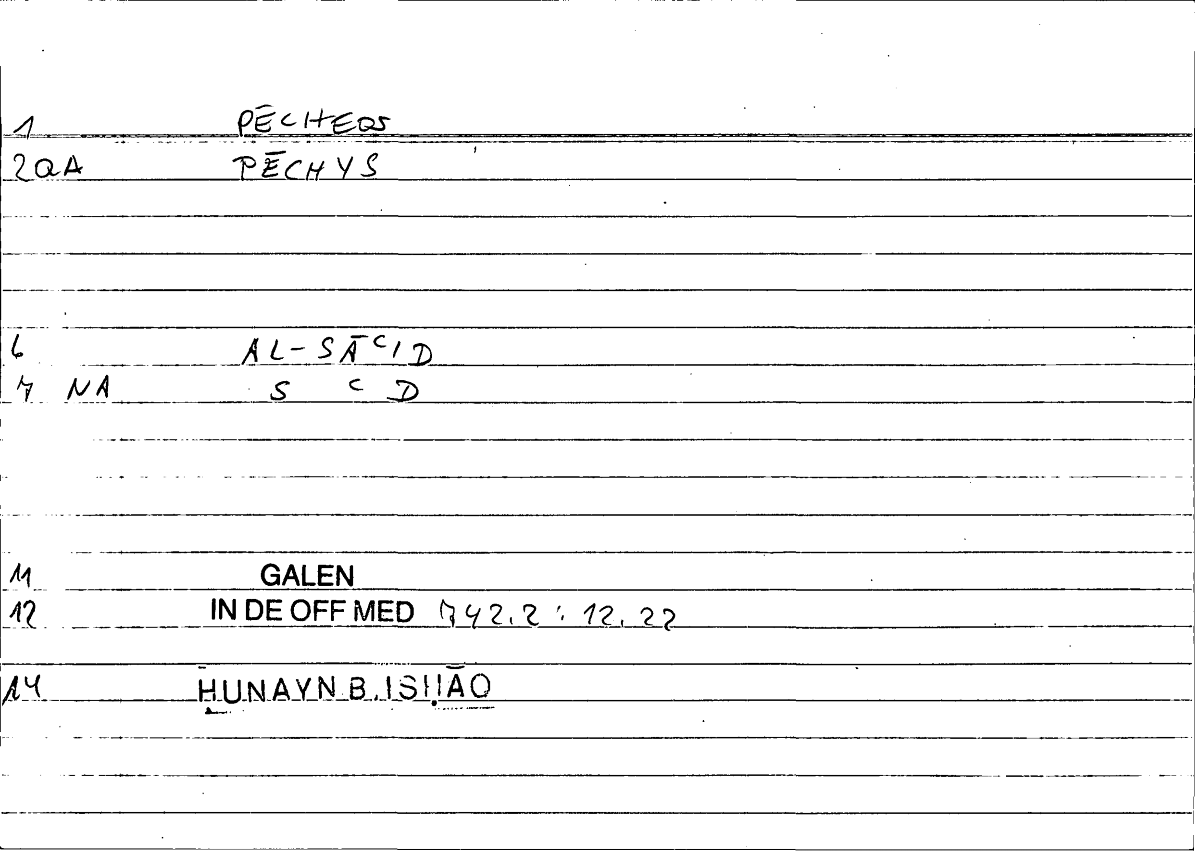 1 PĒCHEŌS
2QA PĒCHYS
6 AL-SĀʿID
7 NA S ʿ D
11 GALEN
12 IN DE OFF MED 742.2 : 12.22
14 ḤUNAYN B. ISḤĀQ